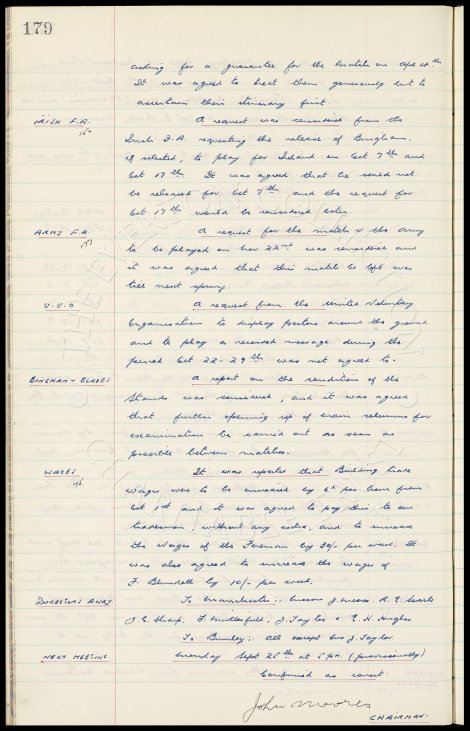 179
asking for a guarantee for the match on
It was agreed to treat them generously but to
ascertain their itinerary first.
IRISH F.A. A request was considered from the
Irish F.A. requesting the release of Bingham,
if selected, to play for Ireland on Oct 7th and
Oct 17th. It was agreed that he could not
be released for Oct 7th and the request for
Oct 17th would be considered later.
ARMY F.A. A request for the match v the Army
to be played on Nov. 22nd was considered and
it was agreed that this match be left over
till next spring.
U.V.O A request from the United Voluntary
Organisation to display posters around the ground
and to play a recorded message during the
period Oct 22-29th was not agreed to.
BINGHAM & BLADES A report on the condition of the
Stands was considered, and it was agreed
that further opening up of main columns for
examination be carried out as soon as
possible between matches.
WAGES It was reported that Building trade
wages was to be increased by per hour from
Oct 1st and it was agreed to pay this to our
tradesmen, without any extra, and to increase
the wages of the Foreman by 30/- per week. It
was also agreed to increase the wages of
F. Blundell by 10/- per week.
DIRECTORS AWAY. To Manchester:. Messrs J. Moores. R. E. Searle
O. E. Sharp, F. Micklesfield, J. Taylor & E. H. Hughes
To Burnley:. All except Mr J. Taylor
NEXT MEETING Monday Sept 25th at 5 p.m. (provisionally)
Confirmed as correct.
John Moores
CHAIRMAN.